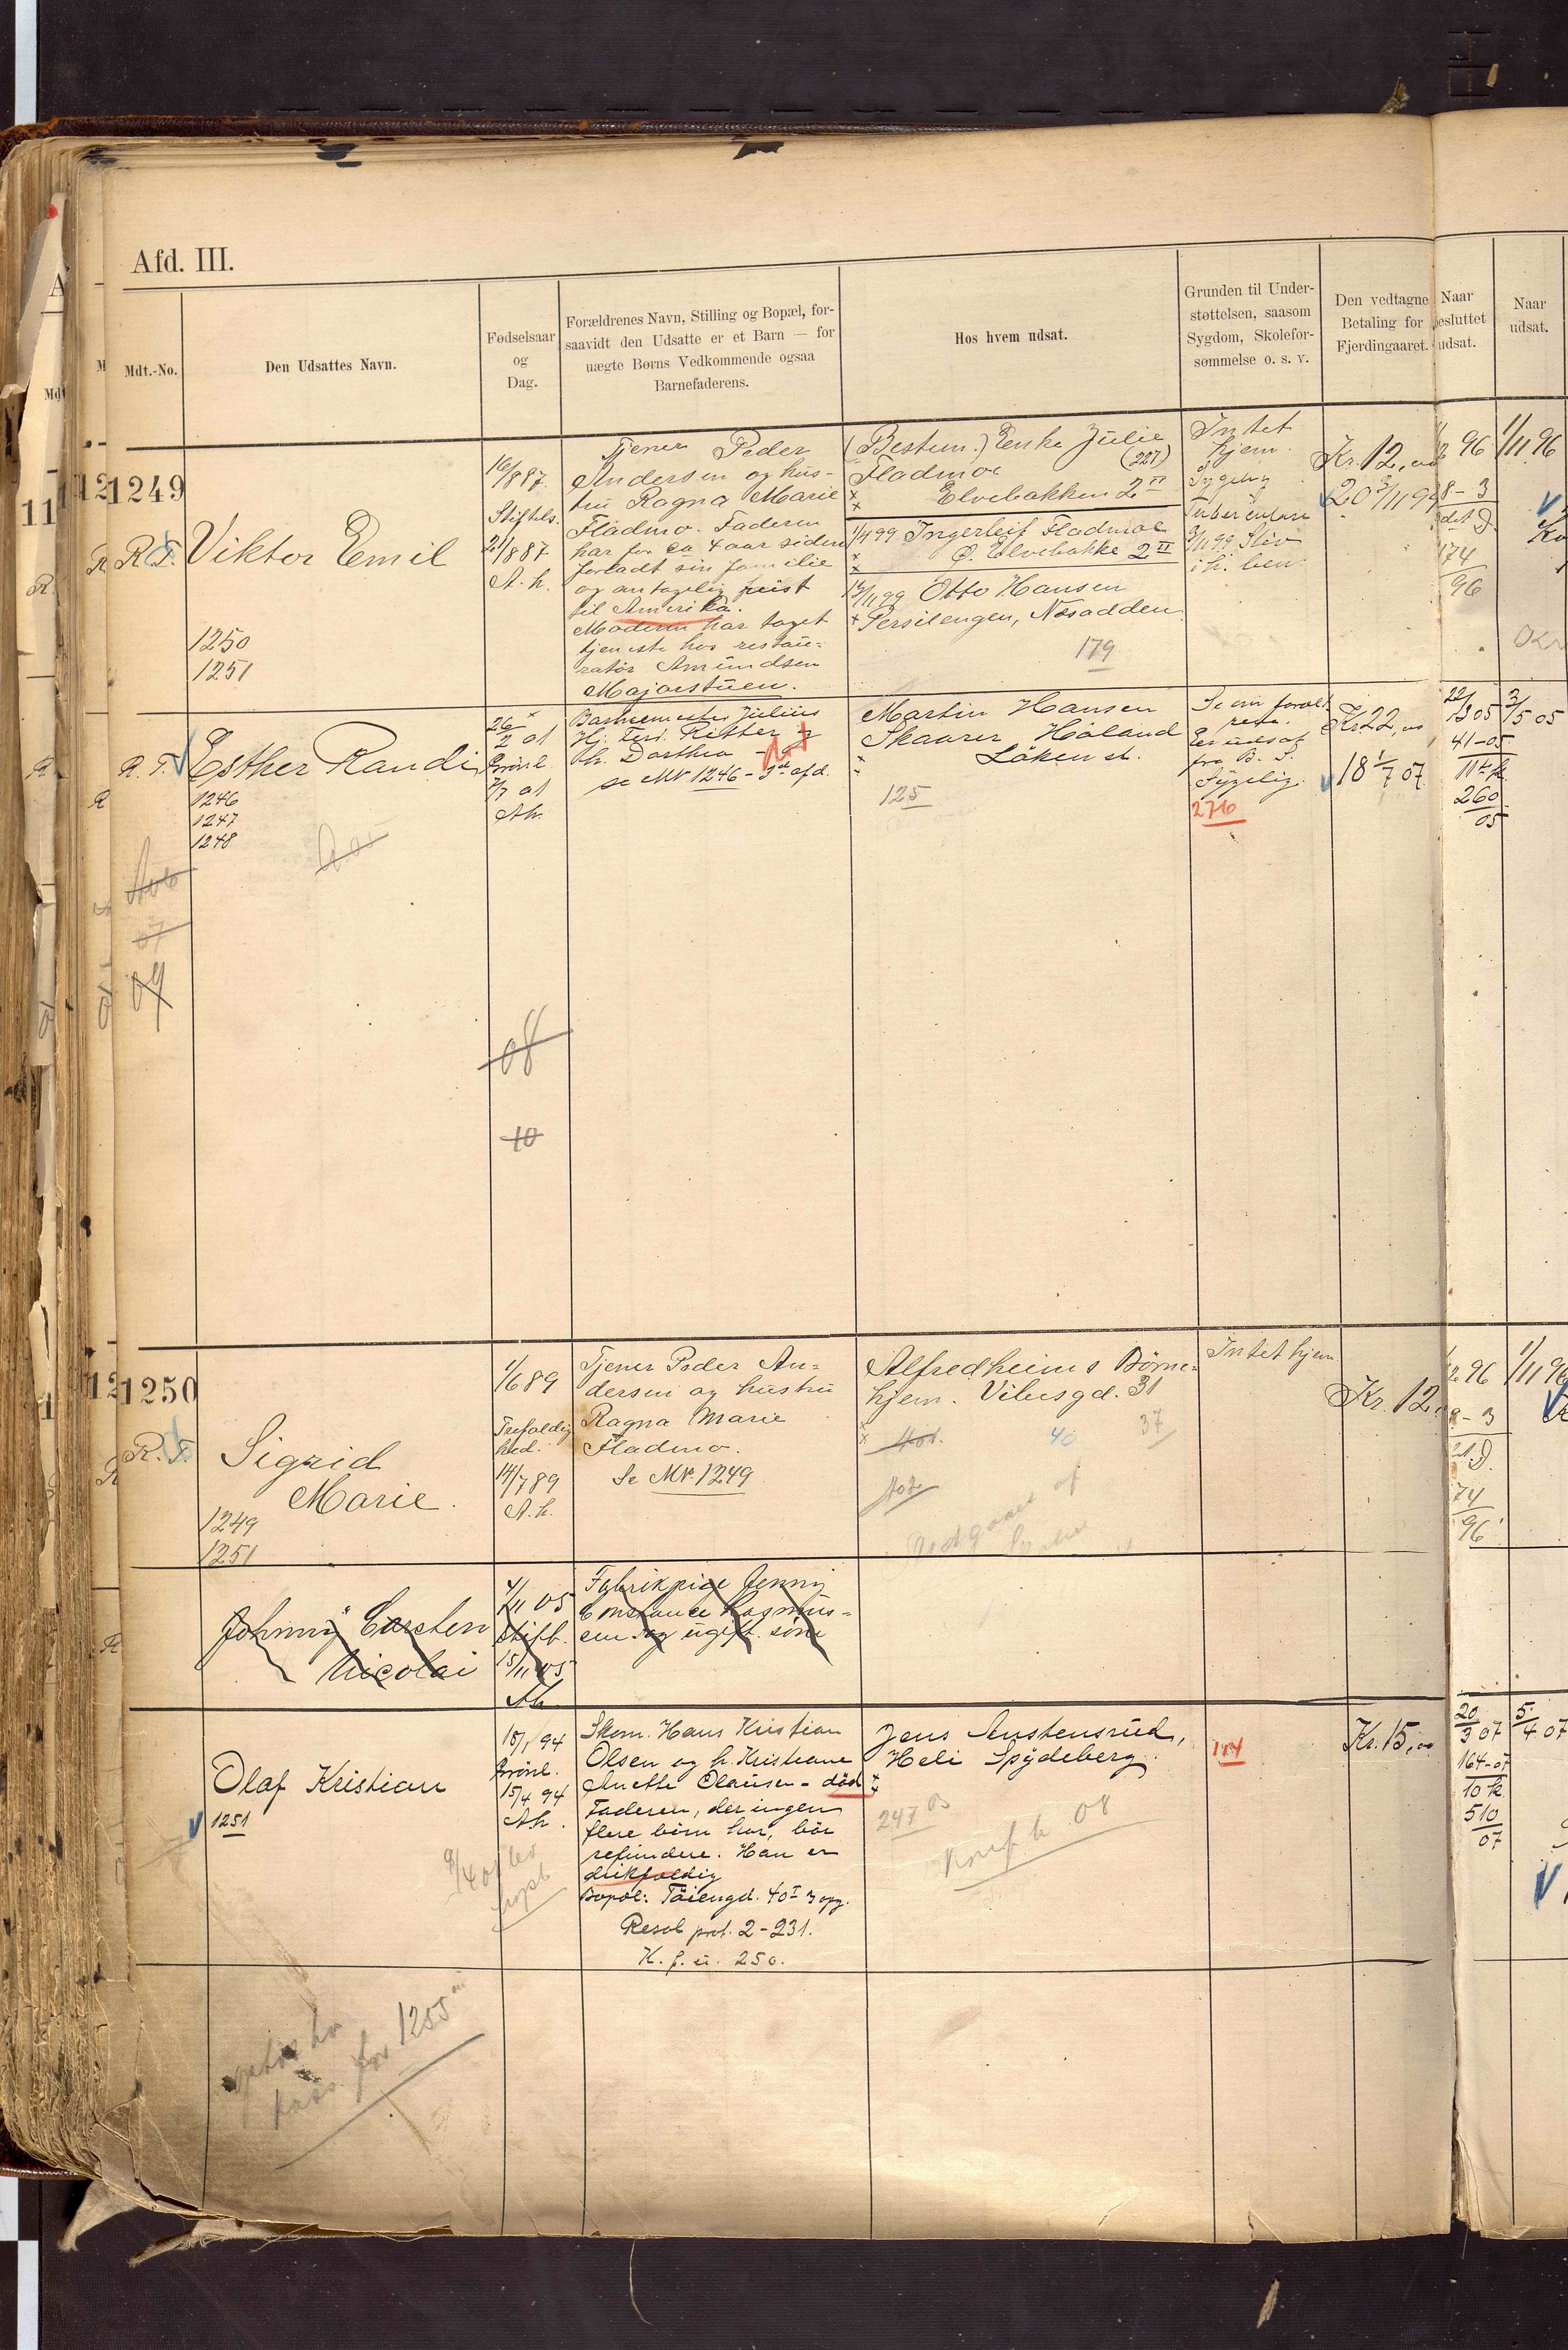 Afd. III.
Mdt.-No.
Den Udsattes Navn.
Fødselsaar
og
Dag.
Forældrenes Navn, Stilling og Bopæl, for-
saavidt den Udsatte er et Barn — for
uægte Børns Vedkommende ogsaa
Barnefaderens.
Hos hvem udsat.
Grunden til Under-
støttelsen, saasom
Sygdom, Skolefor-
sømmelse o. s. v.
Den vedtagne
Betaling for
Fjerdingaaret.
Naar
besluttet
udsat.
Naar
udsat.
1249
R. T.
Viktor Emil
1250
1251
16/8 87
Stiftels.
21/8 87
A. h.
Tjener Peder
Andersen og hus-
tru Ragna Marie
Fladmo. Faderen
har for ca 4 aar siden
forladt sin familie
og antagelig reist
til Amerika.
Moderen har taget
tjeneste hos restau-
ratør Amundsen
Majorstuen.
(Bestem.) Enke Julie
Fladmoe (227)
Elvebakken 2 II
1/1 99 Ingerleif Fladmoe
Ø. Elvebakke 2 II
Otto Hansen
Persilengen, Næsodden
179
Intet
hjem.
Sygelig
Tuberculøse
3/11 99 Stiv
i h. ben
Kr. 12,00
20 3/11 99
96
8 - 3
174
96
1/11 96
R. T.
Esther Randi
1246
1247
1248
26/2 01
Grønl.
7/7 01
Ah.
Banemester Julius
Hj. Ferd. Ritter og
h. Dorthea
se Mr 1246 - 3die afd.
Martin Hansen
Skaarer Høland
Løken st.
125
Se om foræld
rene.
Er udsat
fra B. S.
Sygelig.
276
Kr. 22,00
18 1/7 07
22/3 05
41-05
260
05
3/5 05
07
09
08
10
1250
R. T.
Sigrid
Marie.
1249
1251
1/6 89
Trefoldig
hed.
14/7 89
A. h.
Tjener Peder An-
dersen og hustru
Ragna Marie
Fladmo.
Se Mr. 1249
Alfredheims Børne-
hjem. Vibesgd. 31
40
37
Intet hjem
Kr. 12
96
8 - 3
74
96
1/11 96
Johnny Carsten
Nicolai
4/11 05
Stift.
15/11 05
Ah
Fabrikpige Jenny
Constance Rasmus-
sen og ugift søn
Olaf Kristian
1251
15/1 94
Grønl.
15/4 94
Ah.
Skom. Hans Kristian
Olsen og h. Kristiane
Anette Olausen - død
Faderen, der ingen
flere børn har, bør
refundere. Han er
drikfældig
Bopæl: Tøiengd. 40 I 3 opg.
Resol prot. 2 - 231.
K. f. u. 250.
Jens Austensrud,
Heli Spydeberg.
247 05
Konf. h. 08
114
Kr. 15,00
20/3 07
164-07
10 k
510
07
5/4 07
for 1255